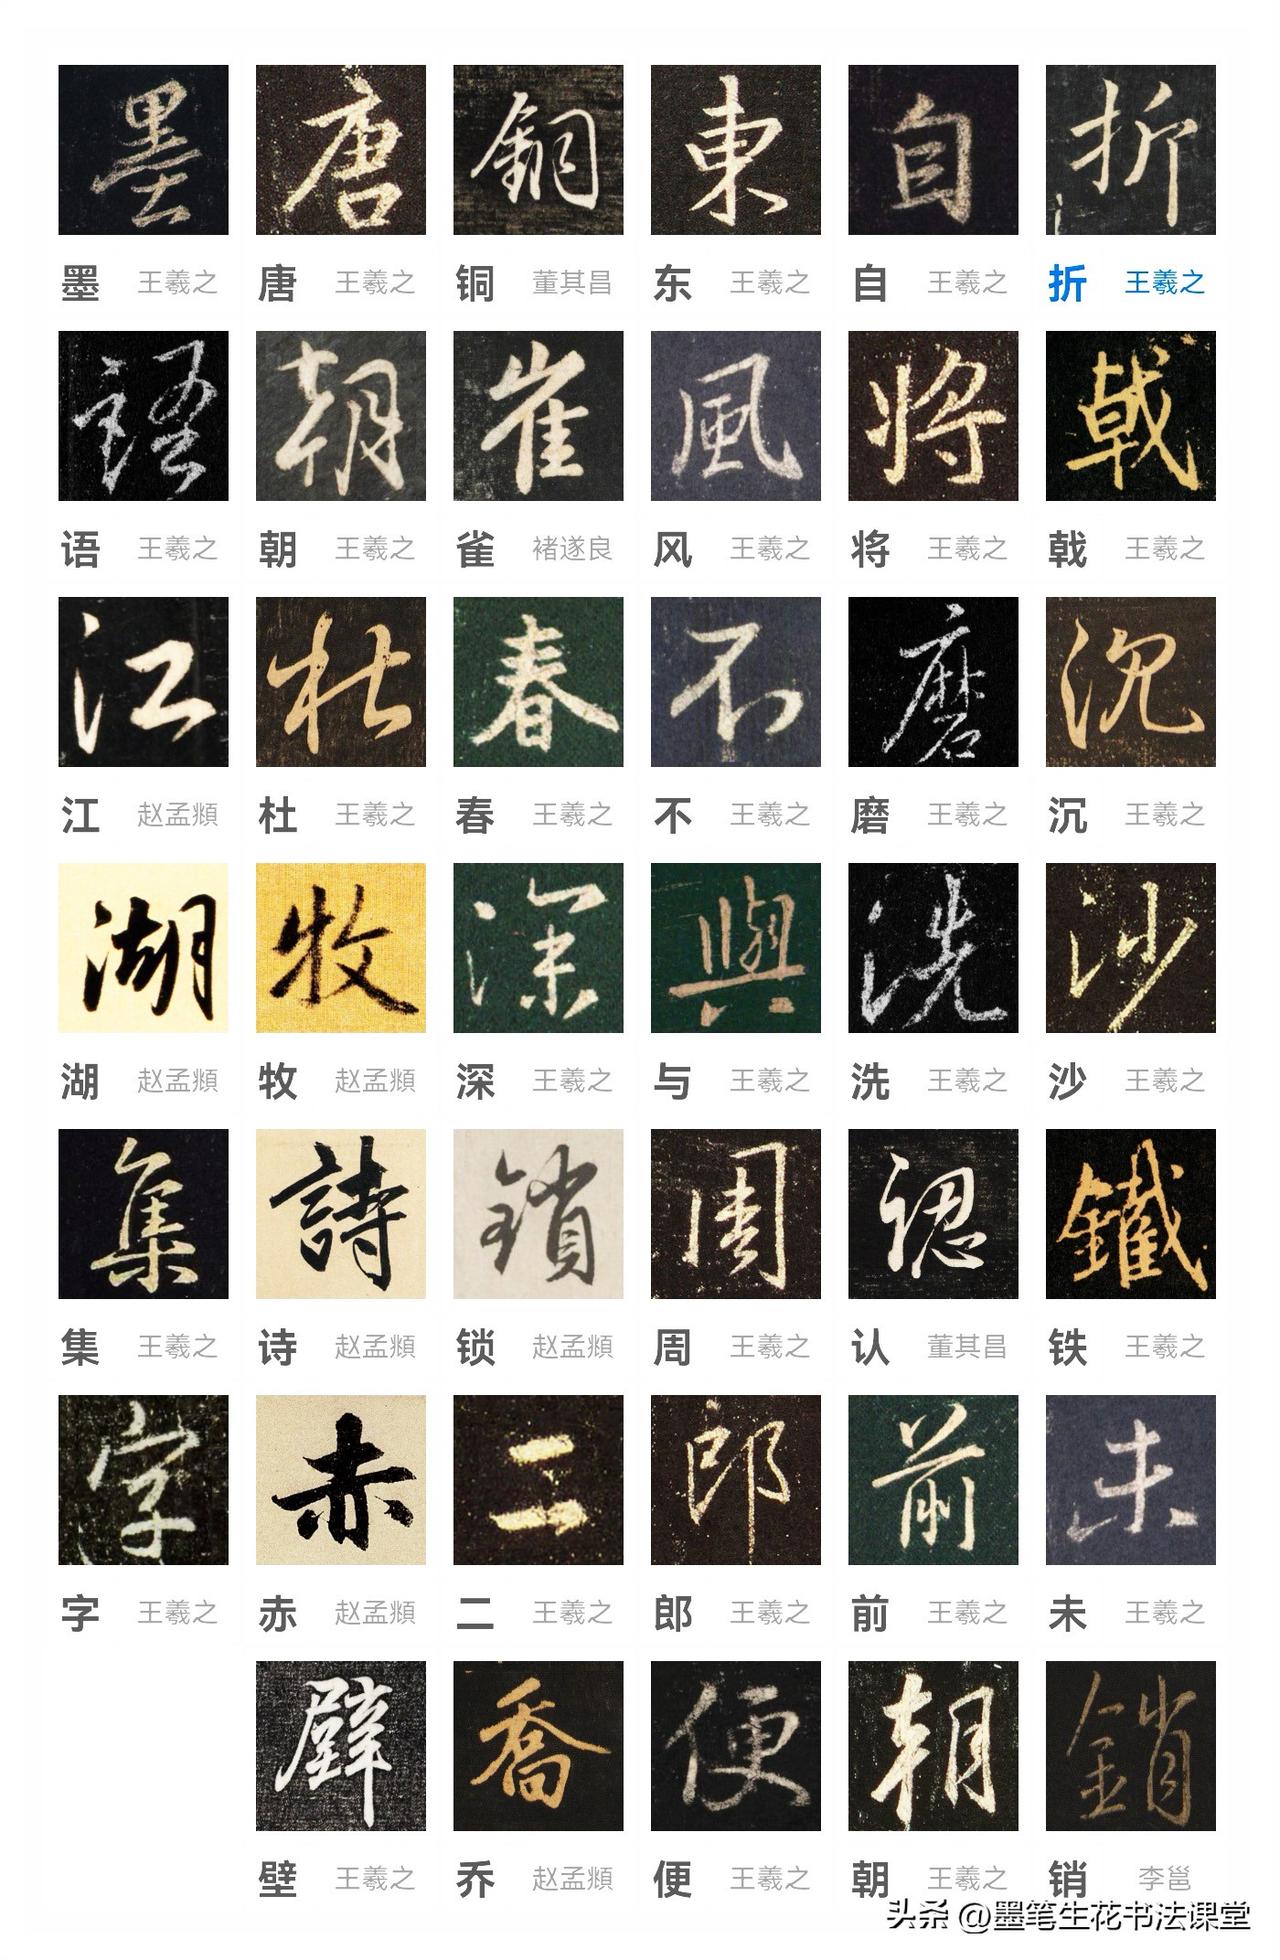 墨 唐 銅 東 自 折
墨 王羲之 唐 王羲之 铜 董其昌 东 王羲之 自 王羲之 折 王羲之
語 朝 崔 風 将 戟
语 王羲之 朝 王羲之 雀 褚遂良 风 王羲之 将 王羲之 戟 王羲之
江 杜 春 不 磨 沉
江 赵孟頫 杜 王羲之 春 王羲之 不 王羲之 磨 王羲之 沉 王羲之
湖 牧 深 與 洗 沙
湖 赵孟頫 牧 赵孟頫 深 王羲之 与 王羲之 洗 王羲之 沙 王羲之
集 詩 鎖 周 認 鐵
集 王羲之 诗 赵孟頫 锁 赵孟頫 周 王羲之 认 董其昌 铁 王羲之
字 赤 二 郎 前 未
字 王羲之 赤 赵孟頫 二 王羲之 郎 王羲之 前 王羲之 未 王羲之
壁 喬 便 朝 銷
壁 王羲之 乔 赵孟頫 便 王羲之 朝 王羲之 销 李邕
头条 @墨笔生花书法课堂